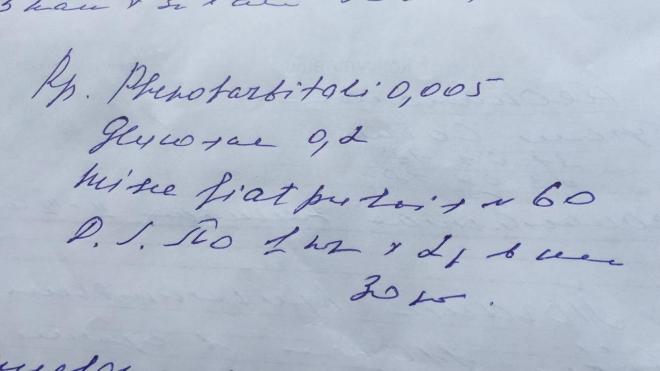 3 кап x 3р
Rp. Phenobarbitali 0,005
Glucosae 0,2
Misce fiat pulvis N 60
D. S. По 1 пор x 2р в
30